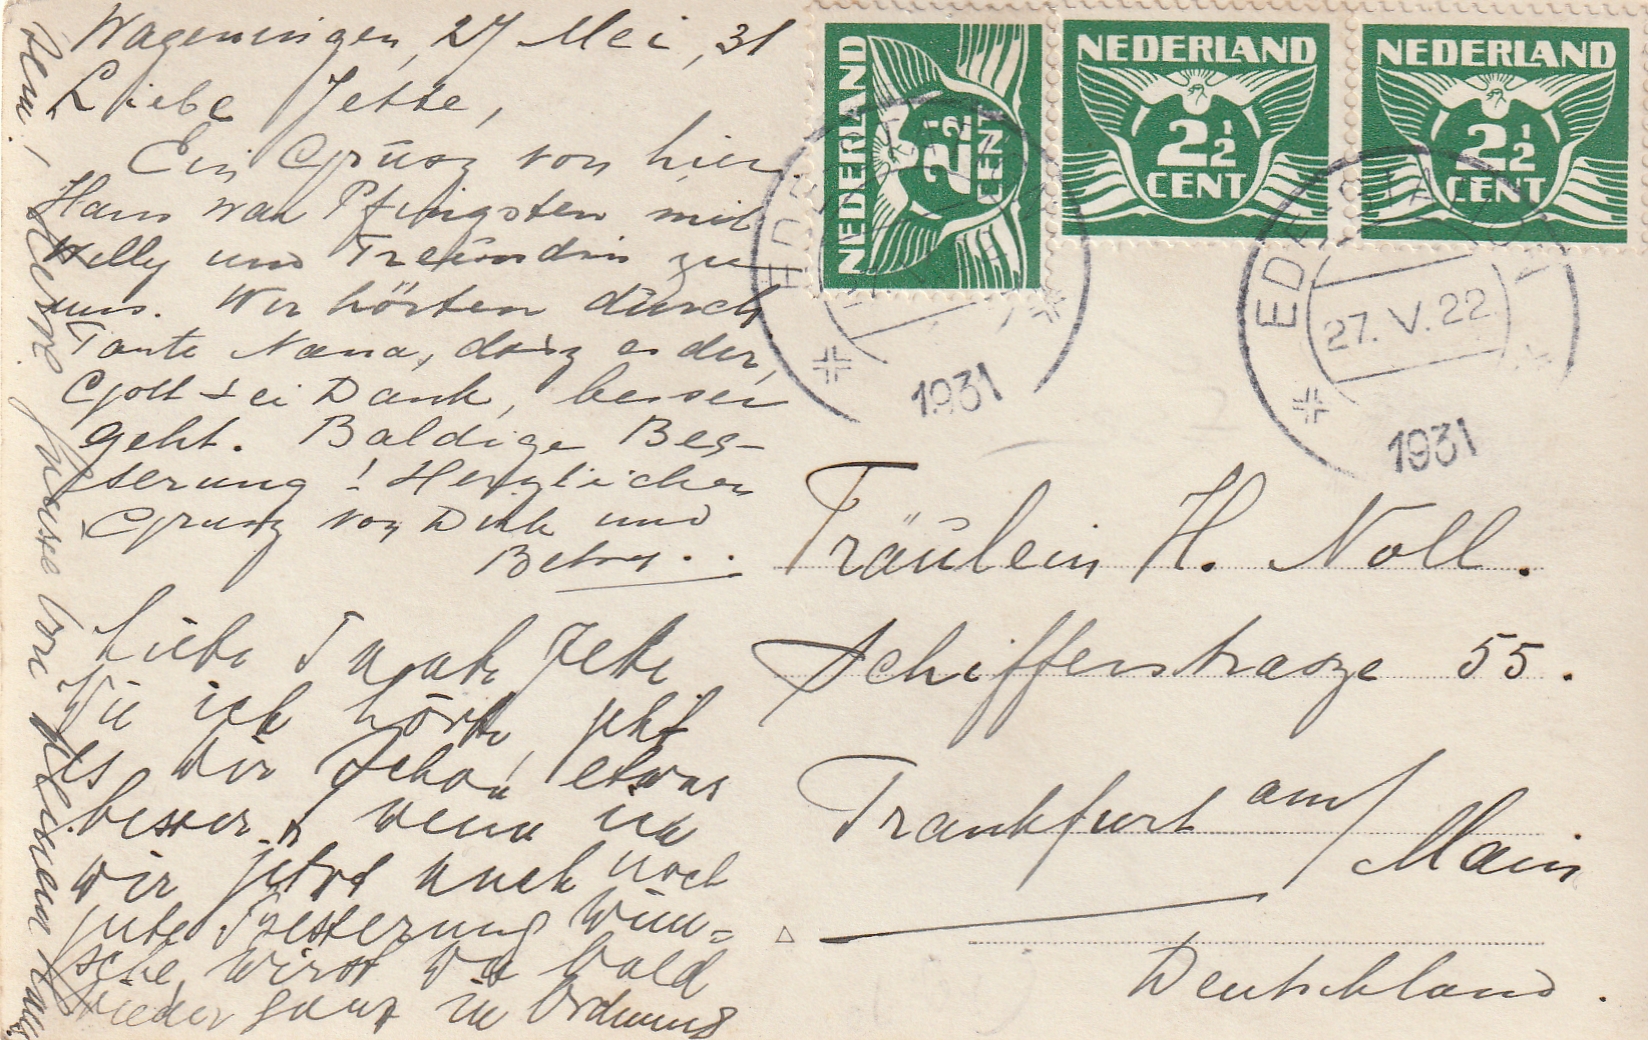 Wageningen, 27 Mei, 31
Liebe Jette,
Ein Grüsz von hier.
Hans war Pfingsten mit
Willy und Freundin zu
uns. Wir hörten durch
Tante Nana, dasz es dir,
Gott sei Dank, besser
geht. Baldige Bes-
serung! Herzlichen
Grusz von Dirk und
Betsy.
Liebe Tante Jette
Wie ich hörte, geht
es dir schon etwas
besser. wenn ich
dir jetzt auch noch
gute Besserung wün-
sche, wirst du bald
wieder ganz in Ordnung
sein. Grüsse von
NEDERLAND
2½
CENT
NEDERLAND
2½
CENT
NEDERLAND
2½
CENT
1931
27. V. 22
1931
Fräulein H. Noll.
Schifferstrasze 55.
Frankfurt am/
Main
Deutschland.